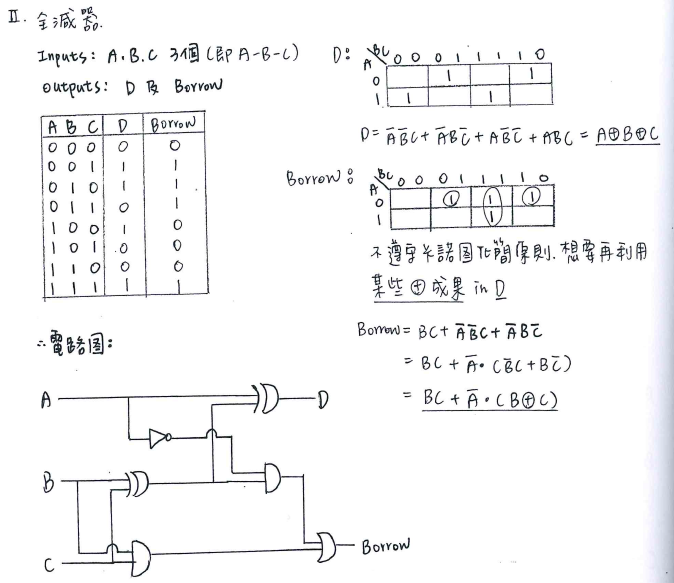 II. 全減器.
Inputs: A.B.C 3個 (即 A-B-C)
outputs: D 及 Borrow
A B C D Borrow
0 0 0 0 0
0 0 1 1 1
0 1 0 1 1
0 1 1 0 1
1 0 0 1 0
1 0 1 0 0
1 1 0 0 0
1 1 1 1 1
D:
BC 00 01 11 10
A
0 1 1
1 1 1
D = A̅B̅C + A̅BC̅ + AB̅C̅ + ABC = A⊕B⊕C
Borrow:
BC 00 01 11 10
A
0 1 1 1
1 1
不遵守卡諾圖化簡原則. 想要再利用
某些⊕成果 in D
Borrow = BC + A̅B̅C + A̅BC̅
= BC + A̅·(B̅C + BC̅)
= BC + A̅·(B⊕C)
∴電路圖:
A
D
B
C
Borrow